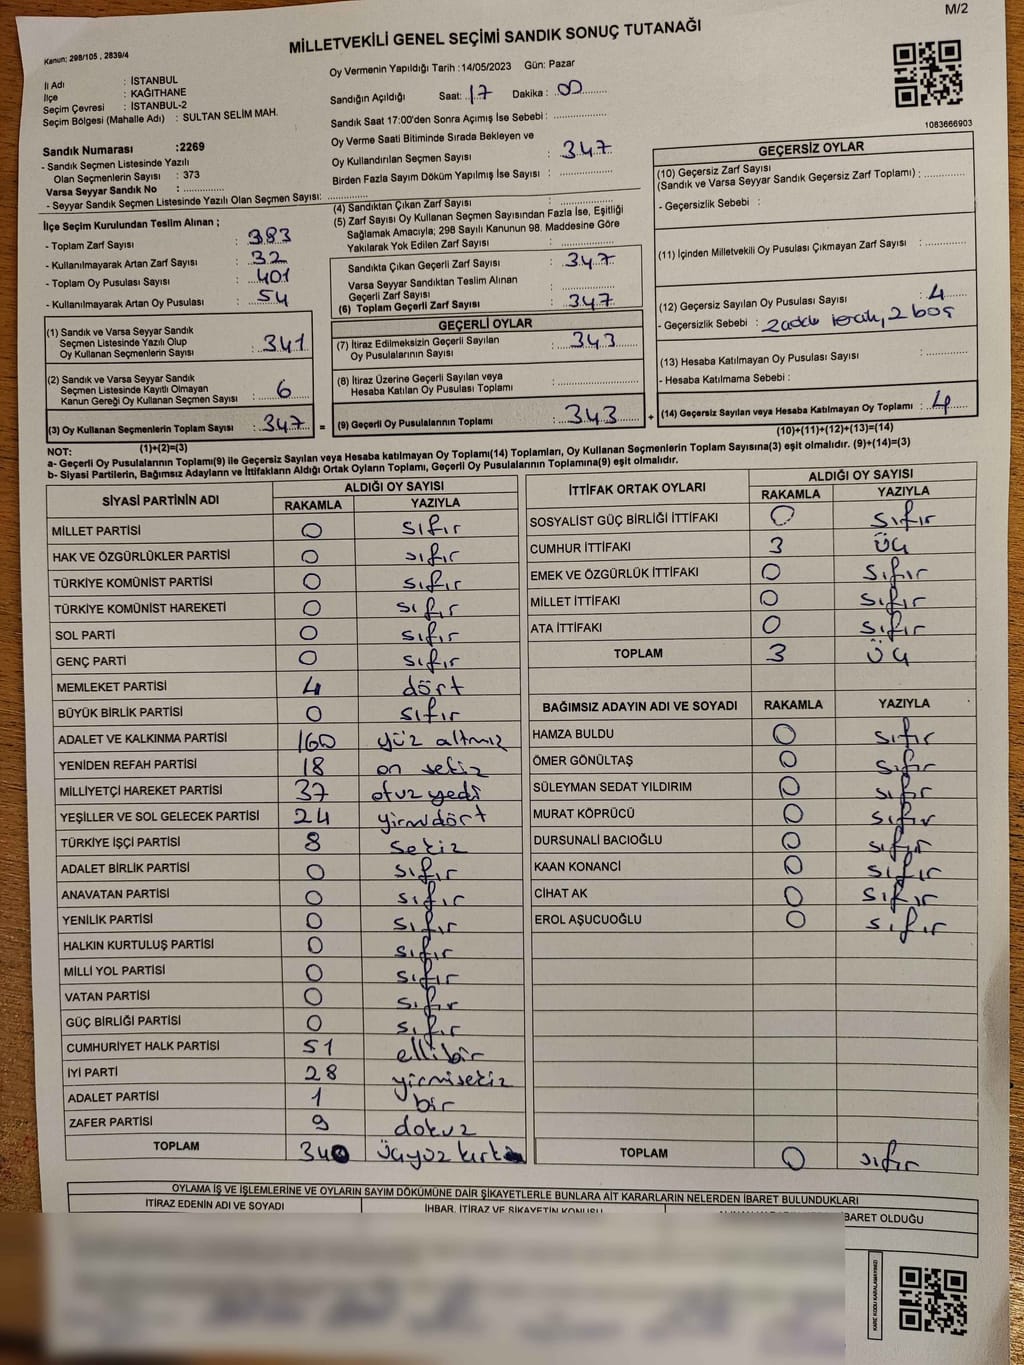 M/2
Kanun: 298/105 , 2839/4
MİLLETVEKİLİ GENEL SEÇİMİ SANDIK SONUÇ TUTANAĞI
İl Adı : İSTANBUL
İlçe : KAĞITHANE
Seçim Çevresi : İSTANBUL-2
Seçim Bölgesi (Mahalle Adı) : SULTAN SELİM MAH.
Oy Vermenin Yapıldığı Tarih :14/05/2023 Gün: Pazar
Sandığın Açıldığı Saat: 17 Dakika : 00
Sandık Saat 17:00'den Sonra Açımış İse Sebebi :
Oy Verme Saati Bitiminde Sırada Bekleyen ve
Oy Kullandırılan Seçmen Sayısı : 347
Birden Fazla Sayım Döküm Yapılmış İse Sayısı :
1083666903
Sandık Numarası :2269
- Sandık Seçmen Listesinde Yazılı
Olan Seçmenlerin Sayısı : 373
Varsa Seyyar Sandık No :
- Seyyar Sandık Seçmen Listesinde Yazılı Olan Seçmen Sayısı:
İlçe Seçim Kurulundan Teslim Alınan ;
- Toplam Zarf Sayısı : 383
- Kullanılmayarak Artan Zarf Sayısı : 32
- Toplam Oy Pusulası Sayısı : 401
- Kullanılmayarak Artan Oy Pusulası : 54
(1) Sandık ve Varsa Seyyar Sandık
Seçmen Listesinde Yazılı Olup
Oy Kullanan Seçmenlerin Sayısı : 341
(2) Sandık ve Varsa Seyyar Sandık
Seçmen Listesinde Kayıtlı Olmayan
Kanun Gereği Oy Kullanan Seçmen Sayısı : 6
(3) Oy Kullanan Seçmenlerin Toplam Sayısı : 347 =
(1)+(2)=(3)
(4) Sandıktan Çıkan Zarf Sayısı :
(5) Zarf Sayısı Oy Kullanan Seçmen Sayısından Fazla İse, Eşitliği
Sağlamak Amacıyla; 298 Sayılı Kanunun 98. Maddesine Göre
Yakılarak Yok Edilen Zarf Sayısı :
Sandıkta Çıkan Geçerli Zarf Sayısı : 347
Varsa Seyyar Sandıktan Teslim Alınan
Geçerli Zarf Sayısı :
(6) Toplam Geçerli Zarf Sayısı : 347
GEÇERLİ OYLAR
(7) İtiraz Edilmeksizin Geçerli Sayılan
Oy Pusulalarının Sayısı : 343
(8) İtiraz Üzerine Geçerli Sayılan veya
Hesaba Katılan Oy Pusulası Toplamı :
(9) Geçerli Oy Pusulalarının Toplamı : 343 +
GEÇERSİZ OYLAR
(10) Geçersiz Zarf Sayısı
(Sandık ve Varsa Seyyar Sandık Geçersiz Zarf Toplamı) :
- Geçersizlik Sebebi :
(11) İçinden Milletvekili Oy Pusulası Çıkmayan Zarf Sayısı :
(12) Geçersiz Sayılan Oy Pusulası Sayısı : 4
- Geçersizlik Sebebi : 2 2 boş
(13) Hesaba Katılmayan Oy Pusulası Sayısı :
- Hesaba Katılmama Sebebi :
(14) Geçersiz Sayılan veya Hesaba Katılmayan Oy Toplamı : 4
(10)+(11)+(12)+(13)=(14)
NOT:
a- Geçerli Oy Pusulalarının Toplamı(9) ile Geçersiz Sayılan veya Hesaba katılmayan Oy Toplamı(14) Toplamları, Oy Kullanan Seçmenlerin Toplam Sayısına(3) eşit olmalıdır. (9)+(14)=(3)
b- Siyasi Partilerin, Bağımsız Adayların ve İttifakların Aldığı Ortak Oyların Toplamı, Geçerli Oy Pusulalarının Toplamına(9) eşit olmalıdır.
SİYASİ PARTİNİN ADI ALDIĞI OY SAYISI
RAKAMLA YAZIYLA
MİLLET PARTİSİ 0 sıfır
HAK VE ÖZGÜRLÜKLER PARTİSİ 0 sıfır
TÜRKİYE KOMÜNİST PARTİSİ 0 sıfır
TÜRKİYE KOMÜNİST HAREKETİ 0 sıfır
SOL PARTİ 0 sıfır
GENÇ PARTİ 0 sıfır
MEMLEKET PARTİSİ 4 dört
BÜYÜK BİRLİK PARTİSİ 0 sıfır
ADALET VE KALKINMA PARTİSİ 160 yüz altmış
YENİDEN REFAH PARTİSİ 18 on sekiz
MİLLİYETÇİ HAREKET PARTİSİ 37 otuz yedi
YEŞİLLER VE SOL GELECEK PARTİSİ 24 yirmidört
TÜRKİYE İŞÇİ PARTİSİ 8 sekiz
ADALET BİRLİK PARTİSİ 0 sıfır
ANAVATAN PARTİSİ 0 sıfır
YENİLİK PARTİSİ 0 sıfır
HALKIN KURTULUŞ PARTİSİ 0 sıfır
MİLLİ YOL PARTİSİ 0 sıfır
VATAN PARTİSİ 0 sıfır
GÜÇ BİRLİĞİ PARTİSİ 0 sıfır
CUMHURİYET HALK PARTİSİ 51 ellibir
İYİ PARTİ 28 yirmisekiz
ADALET PARTİSİ 1 bir
ZAFER PARTİSİ 9 dokuz
TOPLAM 340 üçyüz kırk
İTTİFAK ORTAK OYLARI ALDIĞI OY SAYISI
RAKAMLA YAZIYLA
SOSYALİST GÜÇ BİRLİĞİ İTTİFAKI 0 sıfır
CUMHUR İTTİFAKI 3 üç
EMEK VE ÖZGÜRLÜK İTTİFAKI 0 sıfır
MİLLET İTTİFAKI 0 sıfır
ATA İTTİFAKI 0 sıfır
TOPLAM 3 üç
BAĞIMSIZ ADAYIN ADI VE SOYADI RAKAMLA YAZIYLA
HAMZA BULDU 0 sıfır
ÖMER GÖNÜLTAŞ 0 sıfır
SÜLEYMAN SEDAT YILDIRIM 0 sıfır
MURAT KÖPRÜCÜ 0 sıfır
DURSUNALİ BACIOĞLU 0 sıfır
KAAN KONANCİ 0 sıfır
CİHAT AK 0 sıfır
EROL AŞUCUOĞLU 0 sıfır
TOPLAM 0 sıfır
OYLAMA İŞ VE İŞLEMLERİNE VE OYLARIN SAYIM DÖKÜMÜNE DAİR ŞİKAYETLERLE BUNLARA AİT KARARLARIN NELERDEN İBARET BULUNDUKLARI
İTİRAZ EDENİN ADI VE SOYADI İHBAR, İTİRAZ VE ŞİKAYETİN KONUSU İBARET OLDUĞU
KARE KODU KARALAMAYINIZ!